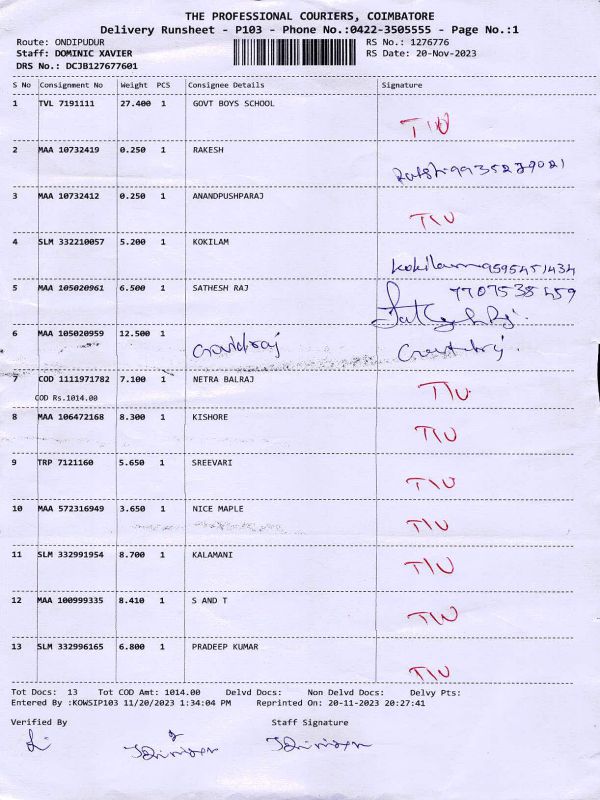 THE PROFESSIONAL COURIERS, COIMBATORE
Delivery Runsheet - P103 - Phone No.:0422-3505555 - Page No.:1
Route: ONDIPUDUR RS No.: 1276776
Staff: DOMINIC XAVIER RS Date: 20-Nov-2023
DRS No.: DCJB127677601
S No Consignment No Weight PCS Consignee Details Signature
1 TVL 7191111 27.400 1 GOVT BOYS SCHOOL
TIU
2 MAA 10732419 0.250 1 RAKESH
9935279021
3 MAA 10732412 0.250 1 ANANDPUSHPARAJ
TIU
4 SLM 332210057 5.200 1 KOKILAM
kokilam 9595451434
5 MAA 105020961 6.500 1 SATHESH RAJ
7707538459
6 MAA 105020959 12.500 1
7 COD 1111971782 7.100 1 NETRA BALRAJ
COD Rs.1014.00
TIU
8 MAA 106472168 8.300 1 KISHORE
TIU
9 TRP 7121160 5.650 1 SREEVARI
TIU
10 MAA 572316949 3.650 1 NICE MAPLE
TIU
11 SLM 332991954 8.700 1 KALAMANI
TIU
12 MAA 100999335 8.410 1 S AND T
TIU
13 SLM 332996165 6.800 1 PRADEEP KUMAR
TIU
Tot Docs: 13 Tot COD Amt: 1014.00 Delvd Docs: Non Delvd Docs: Delvy Pts:
Entered By :KOWSIP103 11/20/2023 1:34:04 PM Reprinted On: 20-11-2023 20:27:41
Verified By Staff Signature